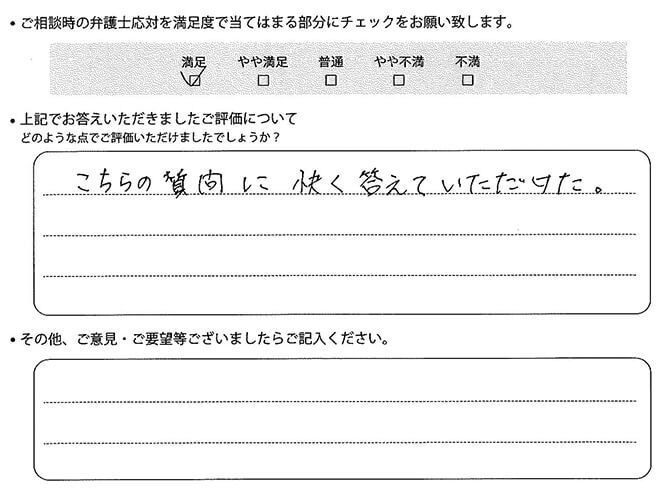 • ご相談時の弁護士応対を満足度で当てはまる部分にチェックをお願い致します。
満足 やや満足 普通 やや不満 不満
• 上記でお答えいただきましたご評価について
どのような点でご評価いただけましたでしょうか？
こちらの質問に快く答えていただけた。
• その他、ご意見・ご要望等ございましたらご記入ください。